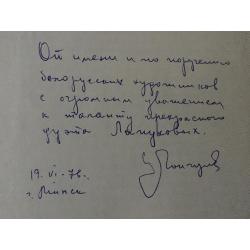 От имени и по поручению
белорусских художников
с огромным уважением
к таланту прекрасного
дуэта Лапуховых.
19. VI - 78.
г. Минск